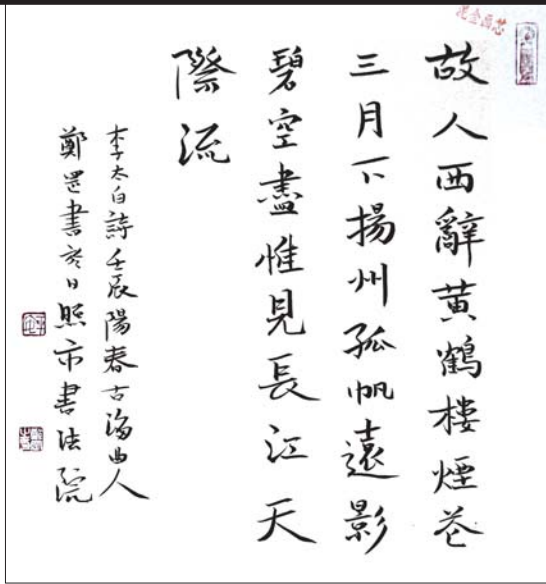 泥金画芯
故人西辭黄鶴樓煙花
三月下揚州孤帆遠影
碧空盡惟見長江天
際流
李太白詩壬辰陽春古海曲人
鄭罡書於日照市書法院